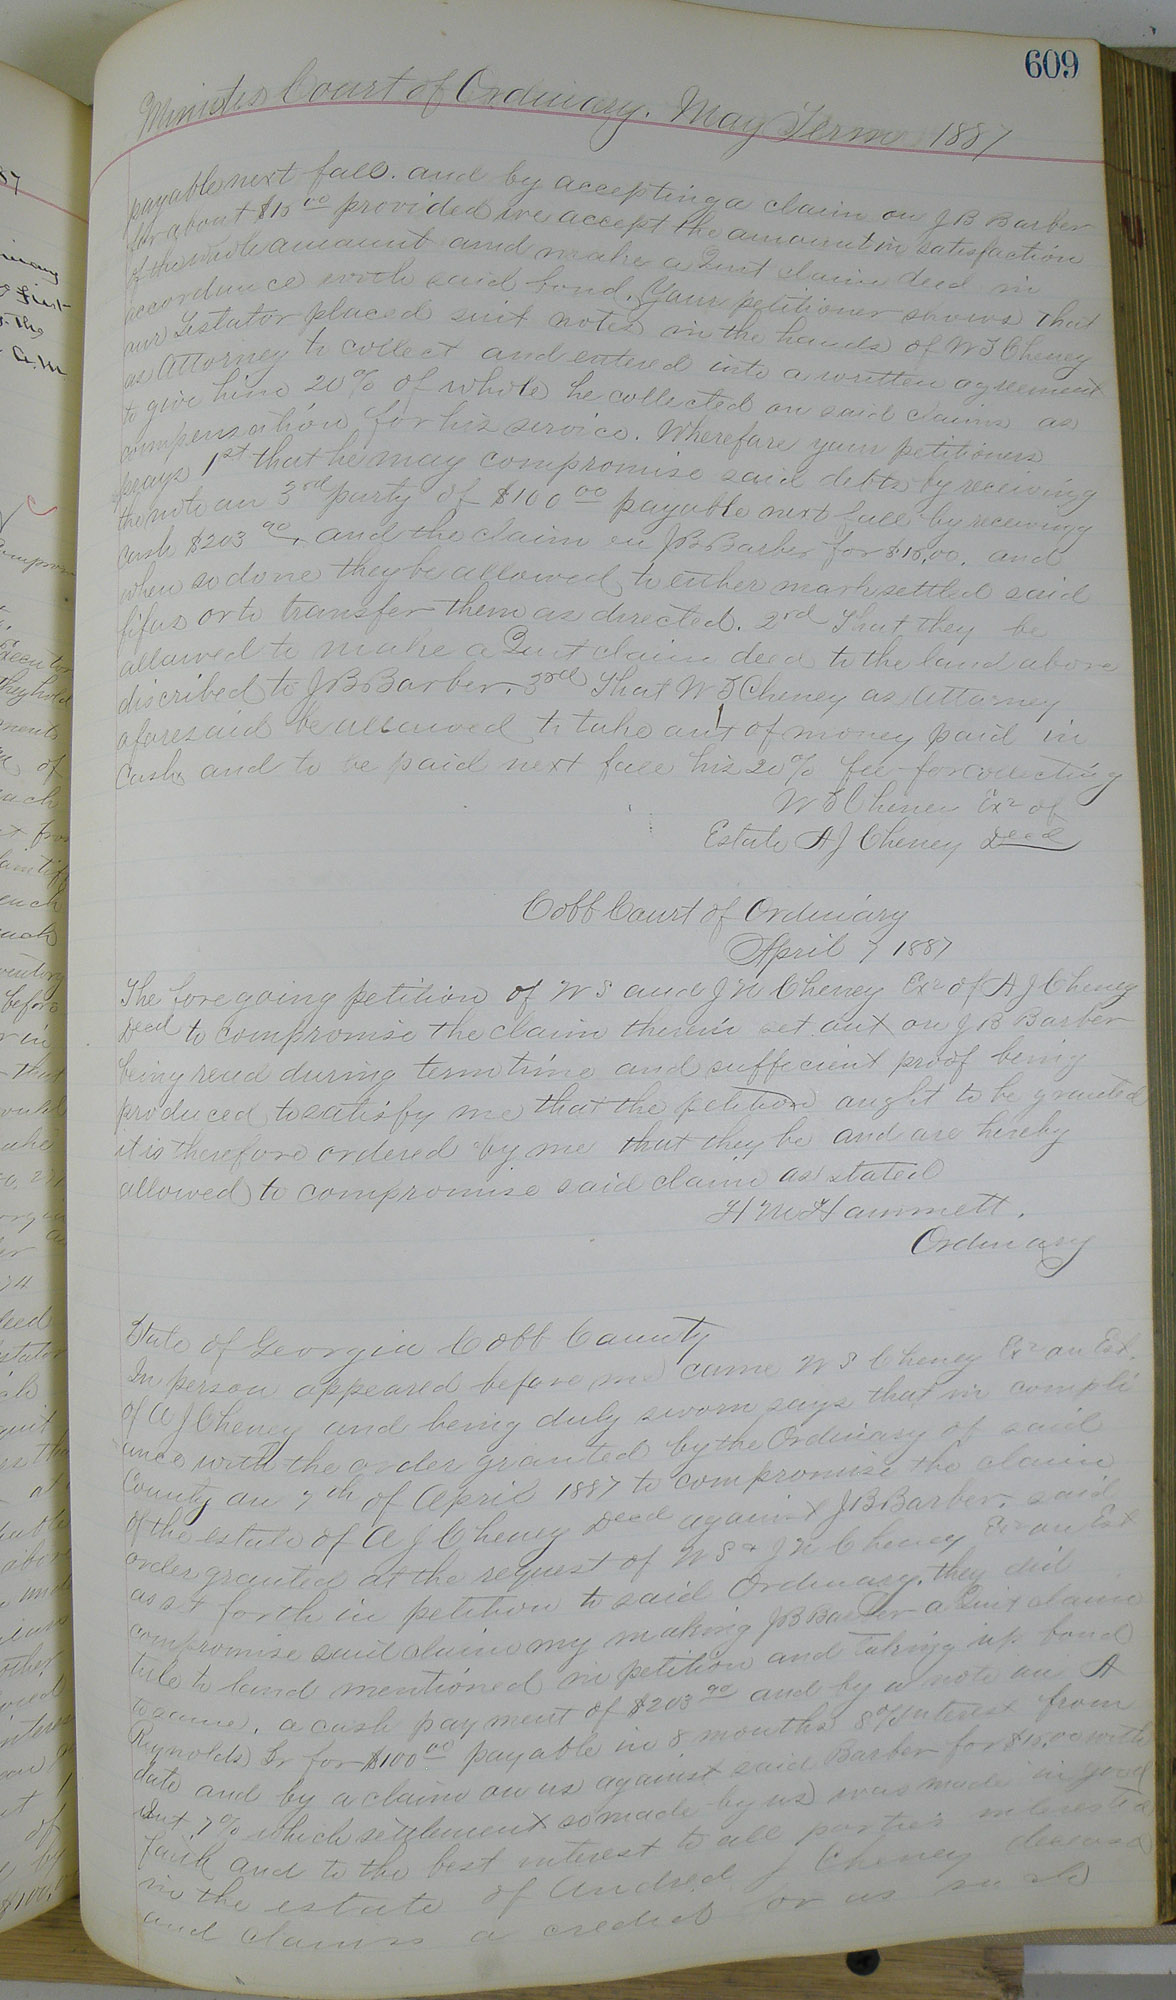 609
Minutes Court of Ordinary. May Term 1887
payable next fall. and by accepting a claim on J B Barber
for about $15 00 provided we accept the amount in satisfaction
of the whole amount and make a Quit claim deed in
accordance with said bond. Your petitioner shows that
our Testator placed suit notes in the hands of W S Cheney
as Attorney to collect and entered into a written agreement
to give him 20% of whole he collected on said claims as
compensation for his service. Wherefore your petitioners
prays 1st that he may compromise said debts by receiving
the note on 3rd party of $100 00 payable next fall by receiving
Cash $203 90, and the claim on J B Barber for $15.00. and
when so done they be allowed to either mark settled said
fifas or to transfer them as directed. 2nd That they be
allowed to make a Quit claim deed to the land above
discribed to J B Barber. 3rd That W S Cheney as Attorney
aforesaid be allowed to take out of money paid in
Cash and to be paid next fall his 20% fee for collecting
W S Cheney Exr of
Estate A J Cheney Decd
Cobb Court of Ordinary
April 7 1887
The foregoing petition of W S and J N Cheney Exr of A J Cheney
Decd to compromise the claim therein set out on J B Barber
being read during term time and sufficient proof being
produced to satisfy me that the petition aught to be granted
it is therefore ordered by me that they be and are hereby
allowed to compromise said claim as stated
H M Hammett.
Ordinary
State of Georgia Cobb County
In person appeared before me came W S Cheney Exr on Est.
of A J Cheney and being duly sworn says that in compli
ance with the order granted by the Ordinary of said
County on 7th of April 1887 to compromise the claim
of the estate of A J Cheney Decd against J B Barber. said
order granted at the request of W S & J N Cheney Exr on Est
as set forth in petition to said Ordinary. they did
compromise said claim my making J B Barber a Quit claim
title to land mentioned in petition and taking up bond
to same. a cash payment of $203 90 and by a note on A
Reynolds Sr for $100 00 payable in 8 months 8% interest from
date and by a claim on us against said Barber for $15.00 with
Int 7% which settlement so made by us was made in good
Faith and to the best interest to all parties interested
in the estate of Andred J Cheney deceased
and claims a credit for as such